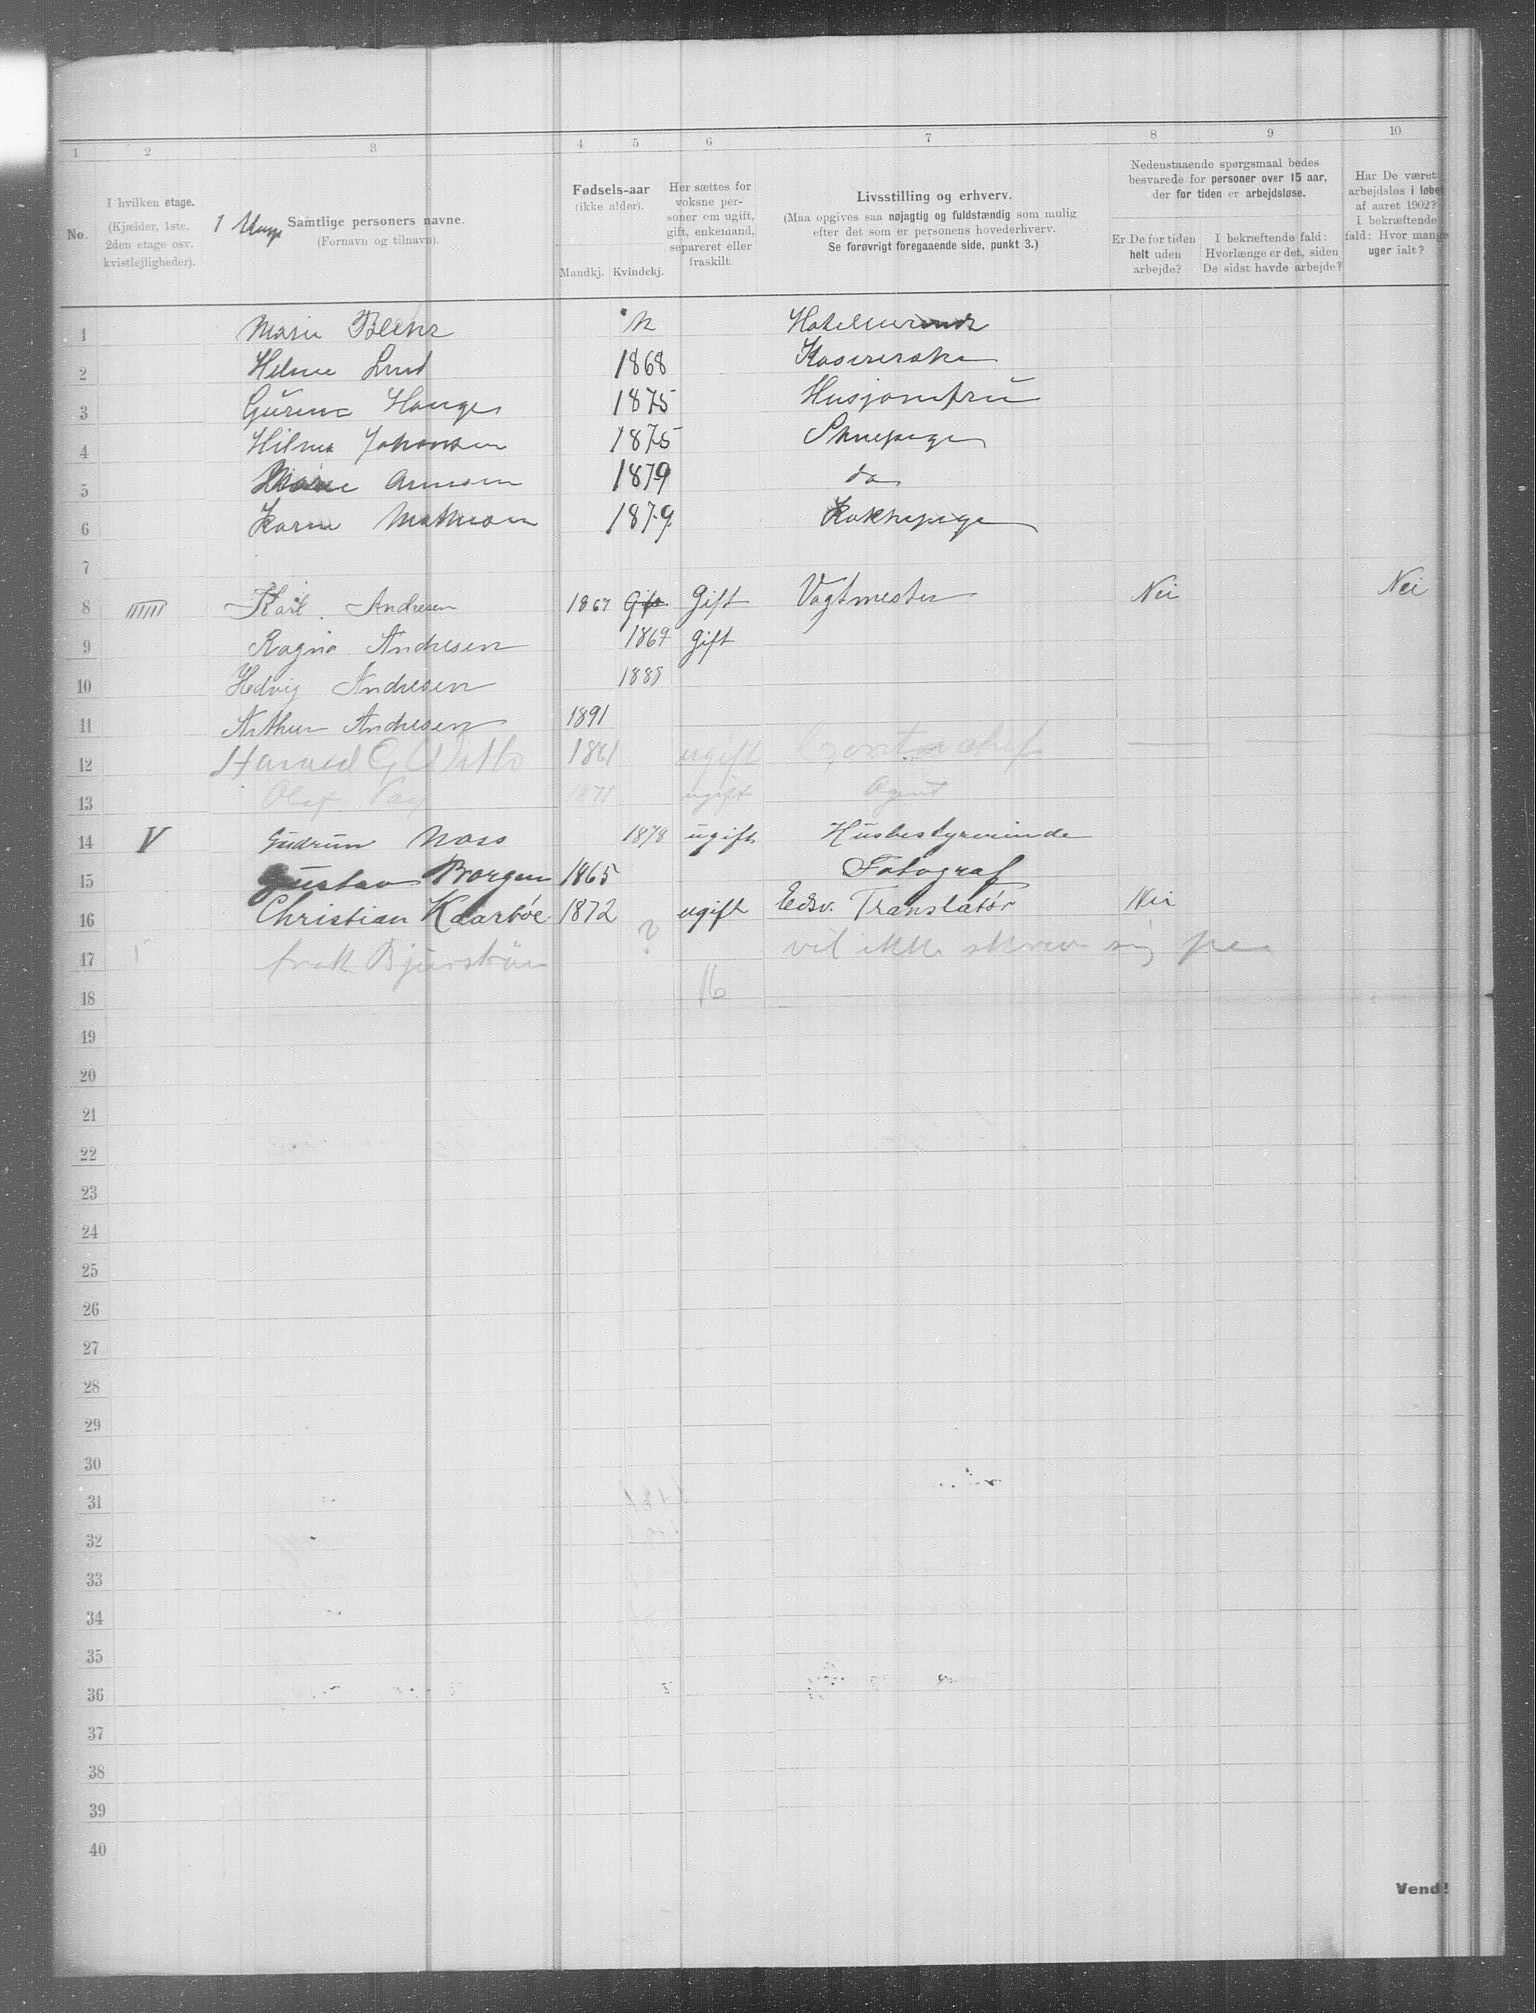 1 2 3 4 5 6 7 8 9 10
No.
I hvilken etage.
(Kjælder, 1ste,
2den etage osv.
kvistlejligheder).
1
Samtlige personers navne.
(Fornavn og tilnavn).
Fødsels-aar
(ikke alder).
Mandkj. Kvindekj.
Her sættes for
voksne per-
soner om ugift,
gift, enkemand,
separeret eller
fraskilt.
Livsstilling og erhverv.
(Maa opgives saa nøjagtig og fuldstændig som mulig
efter det som er personens hovederhverv.
Se forøvrigt foregaaende side, punkt 3.)
Nedenstaaende spørgsmaal bedes
besvarede for personer over 15 aar,
der for tiden er arbejdsløse.
Er De for tiden
helt uden
arbejde?
I bekræftende fald:
Hvorlænge er det, siden
De sidst havde arbejde?
Har De været
arbejdsløs i løbet
af aaret 1902?
I bekræftende
fald: Hvor mange
uger ialt?
1 Marie Blehr
2 Lund 1868 Kasererske
3 Hauge 1875 Husjomfru
4 Hilma Johansen 1875
5 1879 do
6 1879 Kokkepige
7
8 Karl Andresen 1867 Gift Gift Vagtmester Nei Nei
9 Ragna Andresen 1869 gift
10 Hedvig Andresen
11 Arthur Andresen 1891
12 1861 ugift
13 Olaf 1871 ugift Agent
14 V Gudrun 1878 ugift Husbestyrerinde
15 Gustav Borgen 1865 Fotograf
16 Christian Kaarbøe 1872 ugift Edsv. Translatør Nei
17 5 frøk. ? vil ikke skrive sig paa
18 16
19
20
21
22
23
24
25
26
27
28
29
30
31
32
33
34
35
36
37
38
39
40
Vend!